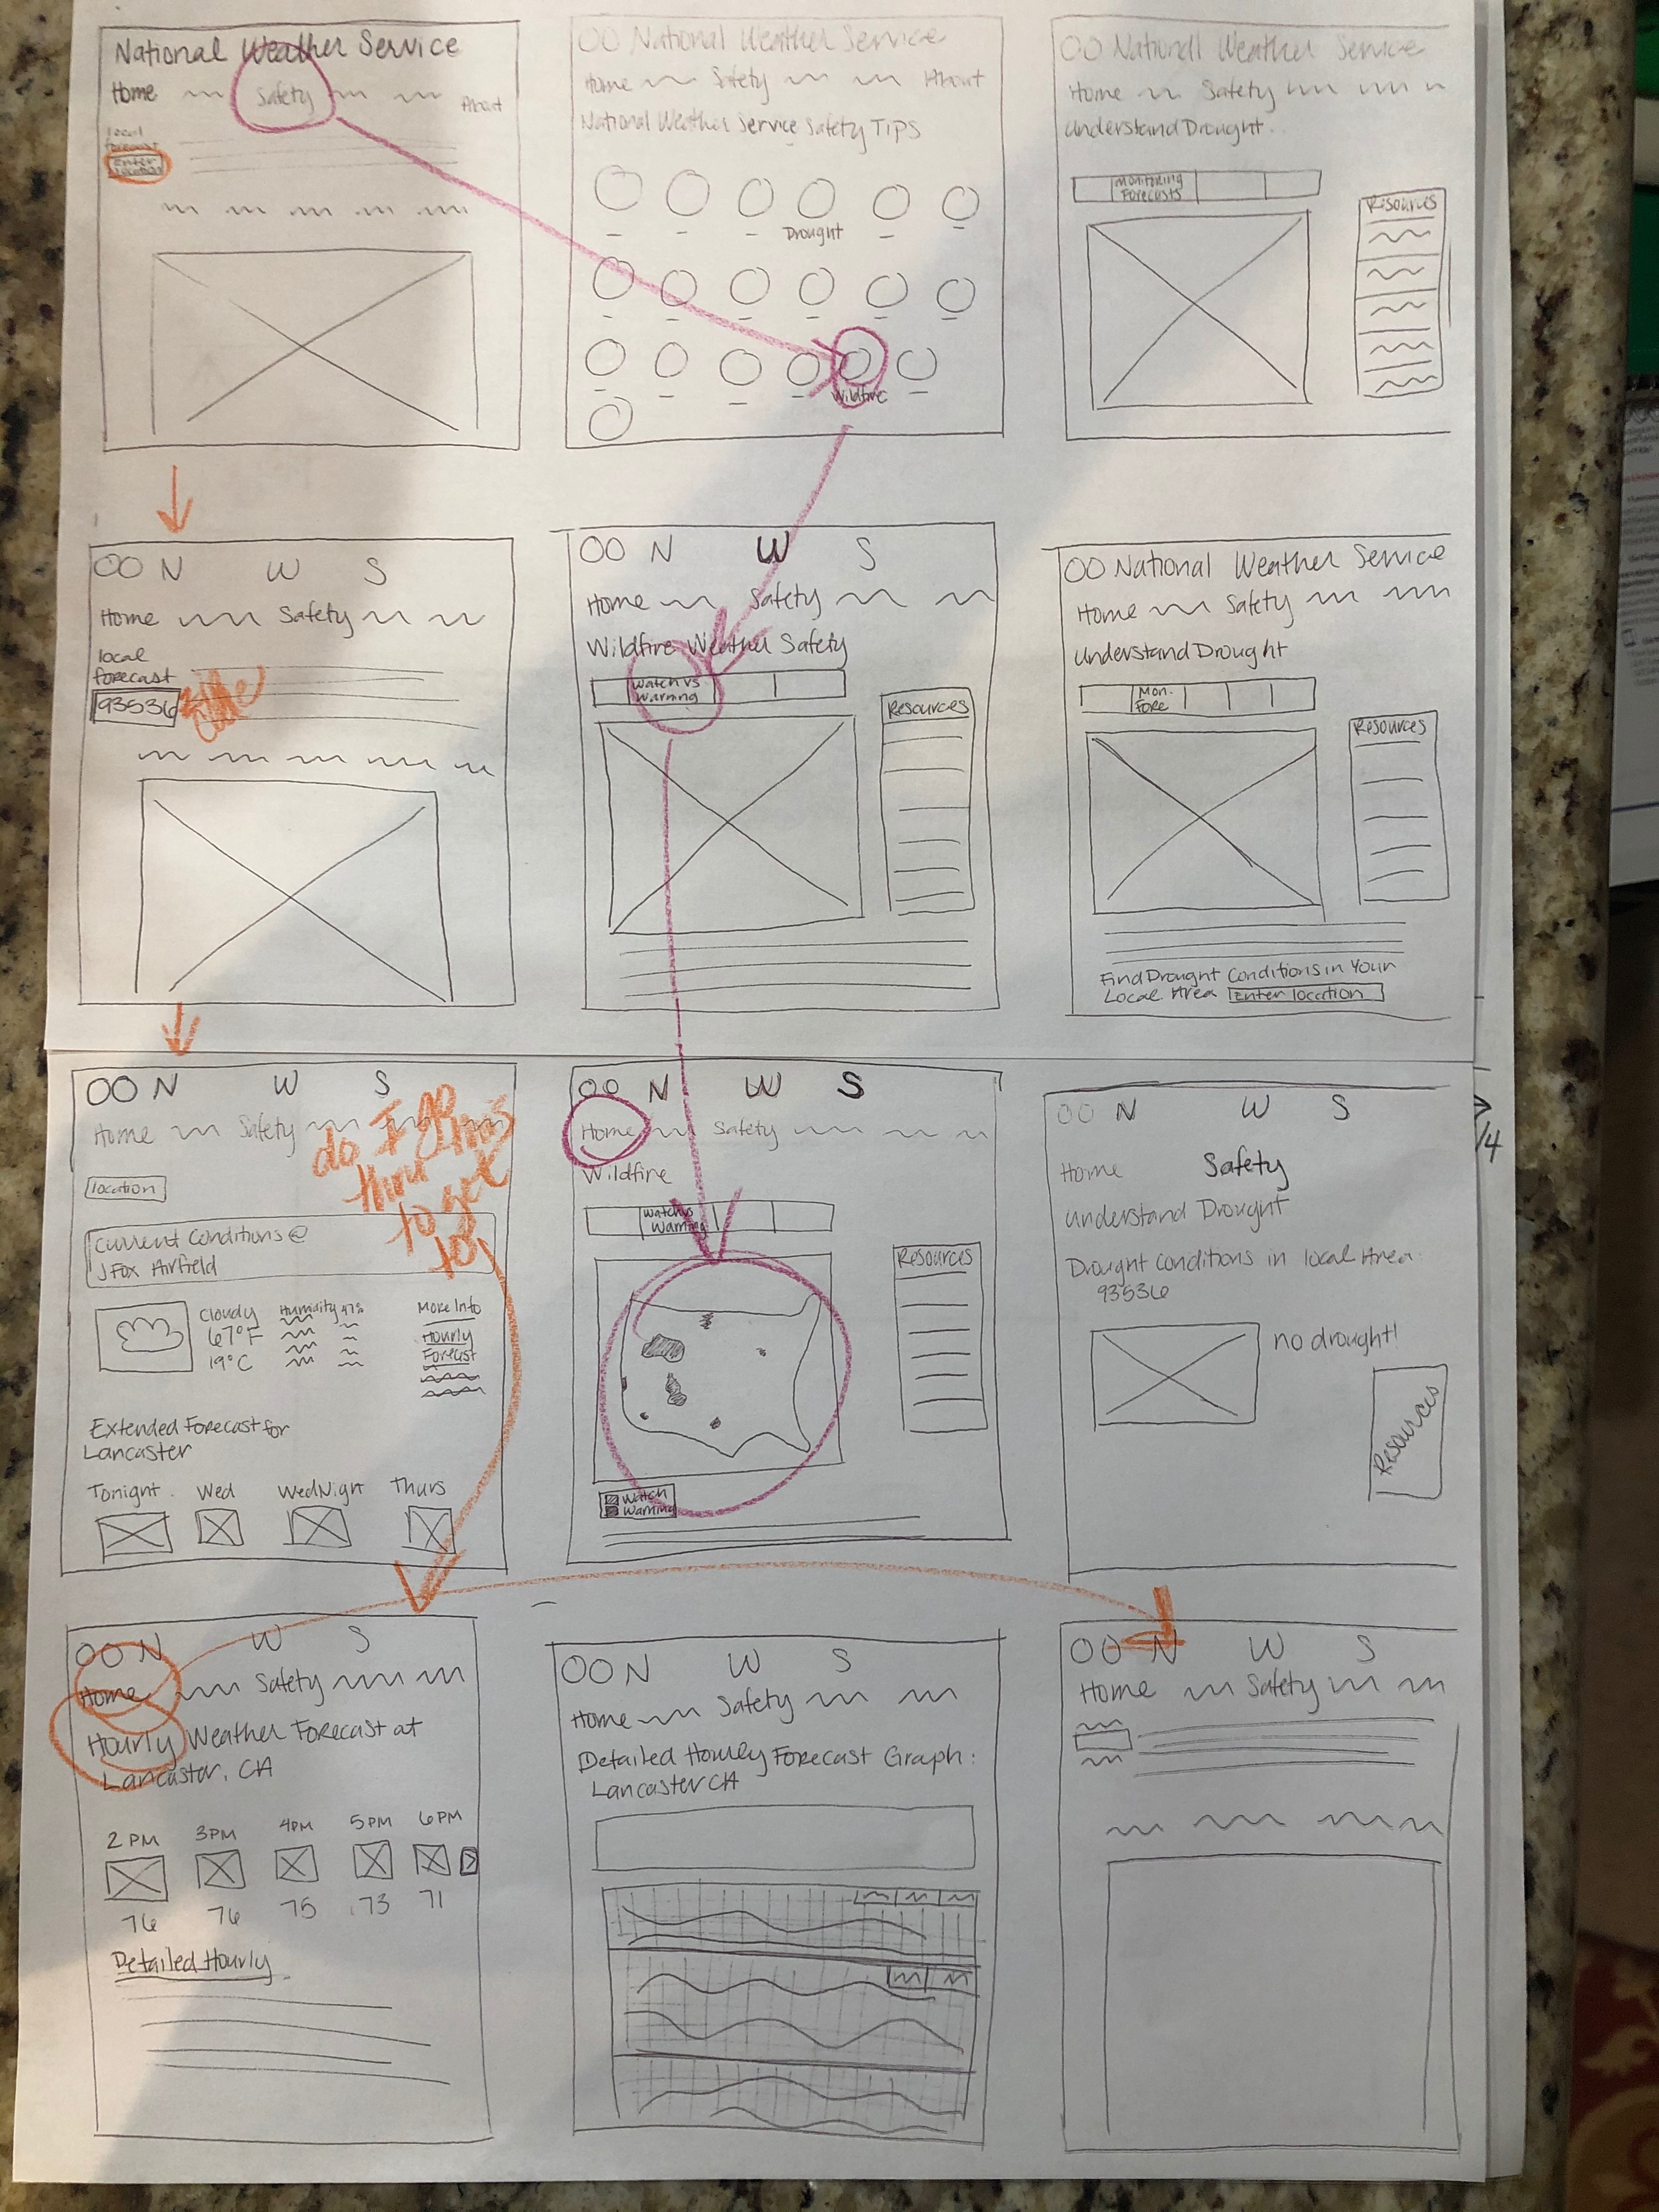 National Weather Service
Home Safety About
local
forecast
Enter
location
OO National Weather Service
Home Safety About
National Weather Service Safety Tips
Drought
Wildfire
OO National Weather Service
Home Safety
Understand Drought
Monitoring
Forecasts
Resources
OO N W S
Home Safety
local
forecast
93536
OO N W S
Home Safety
Wildfire Weather Safety
Watch vs
Warning
Resources
OO National Weather Service
Home Safety
Understand Drought
Mon.
Fore
Resources
Find Drought Conditions in Your
Local Area Enter location
OO N W S
Home Safety
do I go
thru this
to get
to
location
Current Conditions @
J Fox Airfield
Cloudy
67°F
19°C
Humidity 47%
More Info
Hourly
Forecast
Extended Forecast for
Lancaster
Tonight Wed Wed Night Thurs
OO N W S
Home Safety
Wildfire
Watch vs
Warning
Resources
Watch
Warning
OO N W S
Home Safety
Understand Drought
Drought Conditions in local Area:
93536
no drought!
Resources
/4
OO N W S
Home Safety
Hourly Weather Forecast at
Lancaster, CA
2 PM 3PM 4PM 5PM 6PM
76 76 75 73 71
Detailed Hourly
OO N W S
Home Safety
Detailed Hourly Forecast Graph:
Lancaster CA
OO N W S
Home Safety